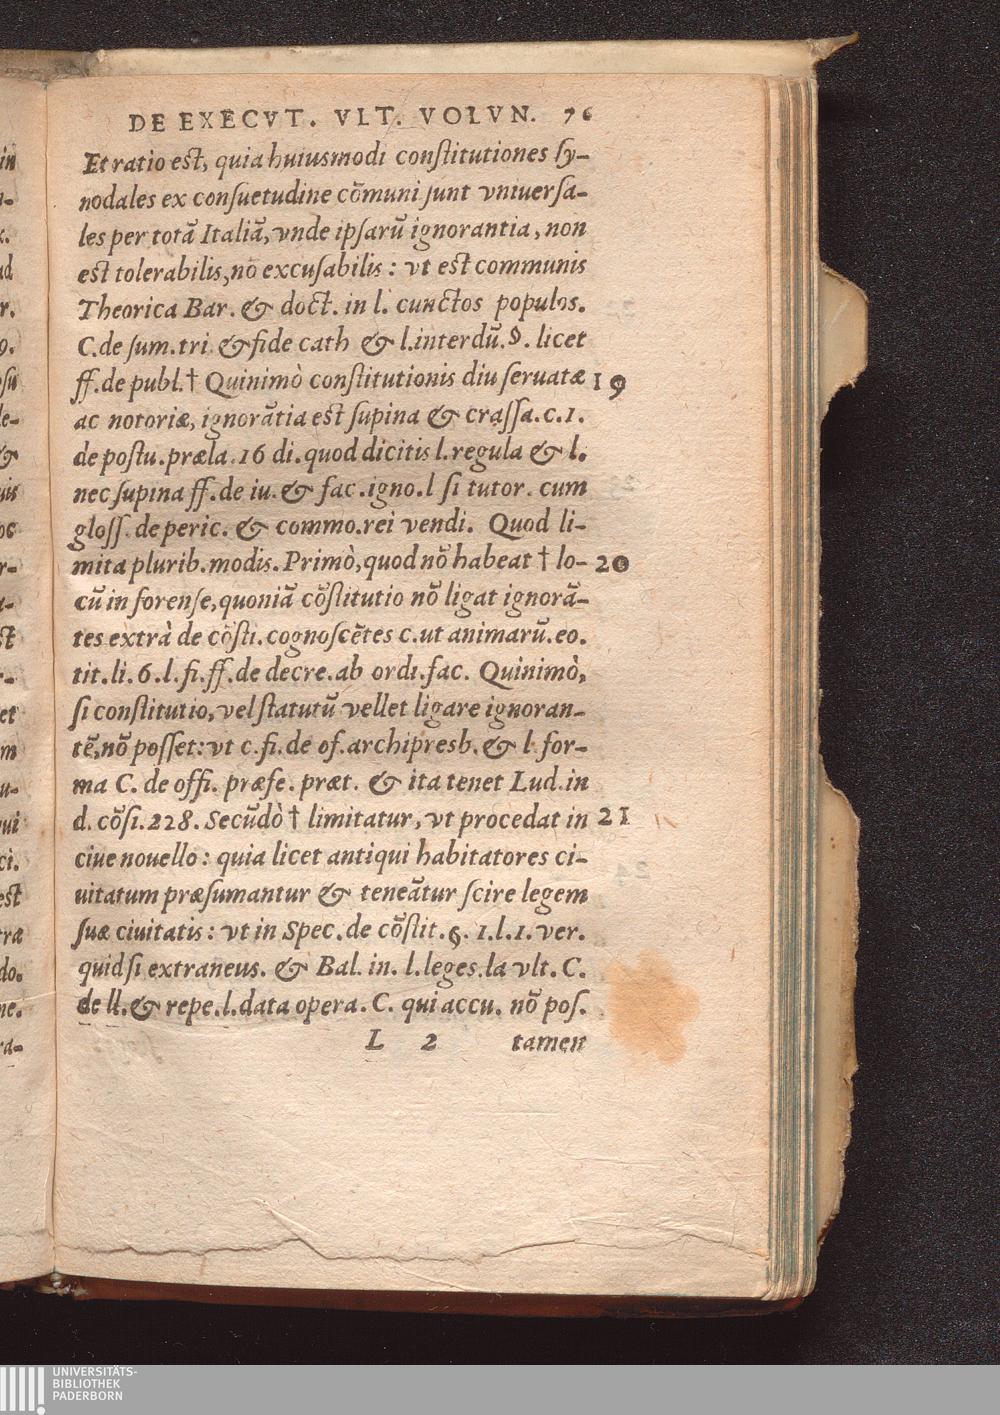 DE EXECVT. VLT. VOLVN. 76
Et ratio est, quia huiusmodi constitutiones sy-
nodales ex consuetudine cõmuni sunt vniuersa-
les per totã Italiã, vnde ipsarũ ignorantia, non
est tolerabilis, no excusabilis: vt est communis
Theorica Bar. & doct. in l. cunctos populos.
C. de sum. tri & fide cath & l. interdũ. §. licet
ff. de publ. † Quinimò constitutionis diu seruatæ 19
ac notoriæ, ignorãtia est supina & crassa. c. 1.
de postu. præla. 16 di. quod dicitis l. regula & l.
nec supina ff. de iu. & fac. igno. l si tutor. cum
gloss. de peric. & commo. rei vendi. Quod li-
mita plurib. modis. Primò, quod nõ habeat † lo- 20
cũ in forense, quoniã cõstitutio nõ ligat ignorã-
tes extrà de cõsti. cognoscẽtes c. ut animarũ. eo.
tit. li. 6. l. fi. ff. de decre. ab ordi. fac. Quinimò,
si constitutio, vel statutũ vellet ligare ignoran-
tẽ, nõ posset: vt c. fi. de of. archipresb. & l. for-
ma C. de offi. præfe. præt. & ita tenet Lud. in
d. cõsi. 228. Secũdò † limitatur, vt procedat in 21
ciue nouello: quia licet antiqui habitatores ci-
uitatum præsumantur & teneãtur scire legem
suæ ciuitatis: vt in Spec. de cõstit. §. 1. l. 1. ver.
quid si extraneus. & Bal. in. l. leges. la vlt. C.
de ll. & repe. l. data opera. C. qui accu. nõ pos.
L 2 tamen
UNIVERSITÄTS-
BIBLIOTHEK
PADERBORN